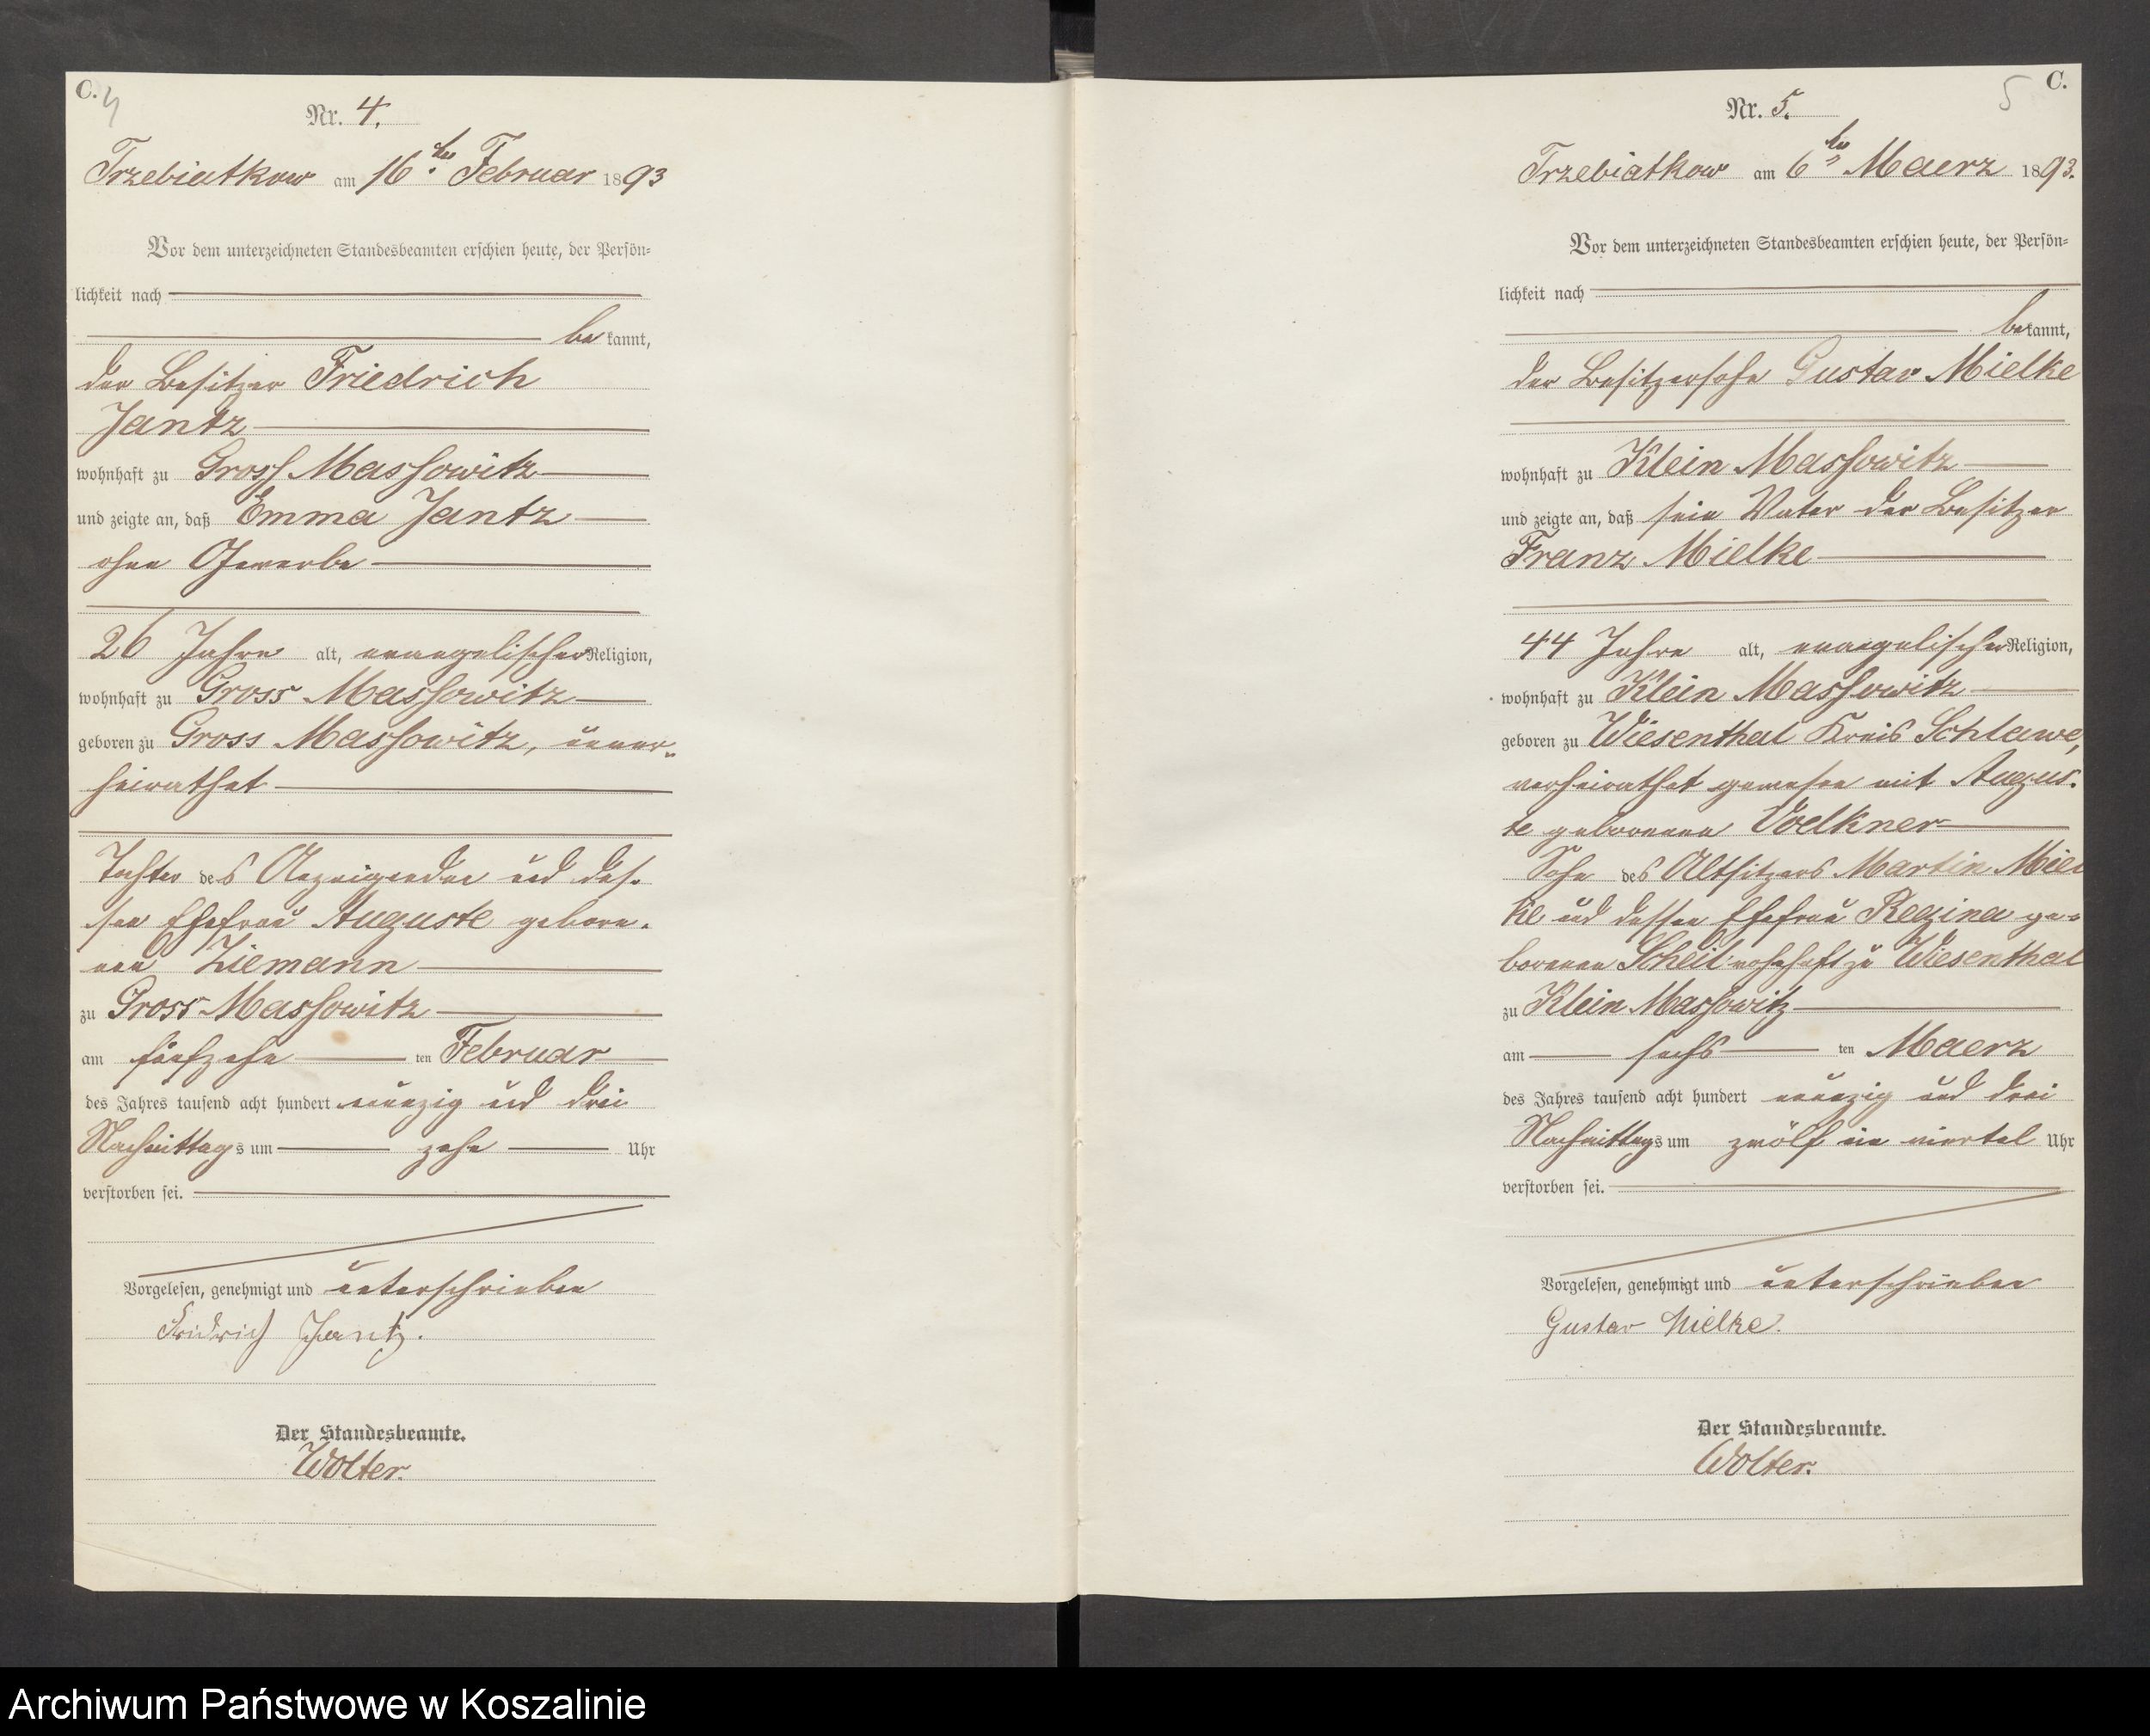 C. 4
Nr. 4.
Trzebiatkow am 16ten Februar 1893
Vor dem unterzeichneten Standesbeamten erschien heute, der Persön-
lichkeit nach
bekannt,
der Besitzer Friedrich
Jantz
wohnhaft zu Gross Massowitz
und zeigte an, daß Emma Jantz
ohne Gewerbe
26 Jahre alt, evangelischer Religion,
wohnhaft zu Gross Massowitz
geboren zu Gross Massowitz, unver-
heirathet
Tochter des Anzeigenden und des-
sen Ehefrau Auguste gebore-
nen Ziemann
zu Gross Massowitz
am fünfzehnten Februar
des Jahres tausend acht hundert neunzig und drei
Nachmittags um zehn Uhr
verstorben sei.
Vorgelesen, genehmigt und unterschrieben
Friedrich Jantz.
Der Standesbeamte.
Wolter.
5 C.
Nr. 5.
Trzebiatkow am 6ten Maerz 1893.
Vor dem unterzeichneten Standesbeamten erschien heute, der Persön-
lichkeit nach
bekannt,
der Besitzersohn Gustav Mielke
wohnhaft zu Klein Massowitz
und zeigte an, daß sein Vater der Besitzer
Franz Mielke
44 Jahre alt, evangelischer Religion,
wohnhaft zu Klein Massowitz
geboren zu Wiesenthal Kreis Schlawe,
verheirathet gewesen mit Augus-
te geborenen Voelkner
Sohn des Altsitzers Martin Miel
ke und dessen Ehefrau Regina ge-
borenen Scheil wohnhaft zu Wiesenthal
zu Klein Massowitz
am sechsten Maerz
des Jahres tausend acht hundert neunzig und drei
Nachmittags um zwölf ein viertel Uhr
verstorben sei.
Vorgelesen, genehmigt und unterschrieben
Gustav Mielke.
Der Standesbeamte.
Wolter.
Archiwum Państwowe w Koszalinie